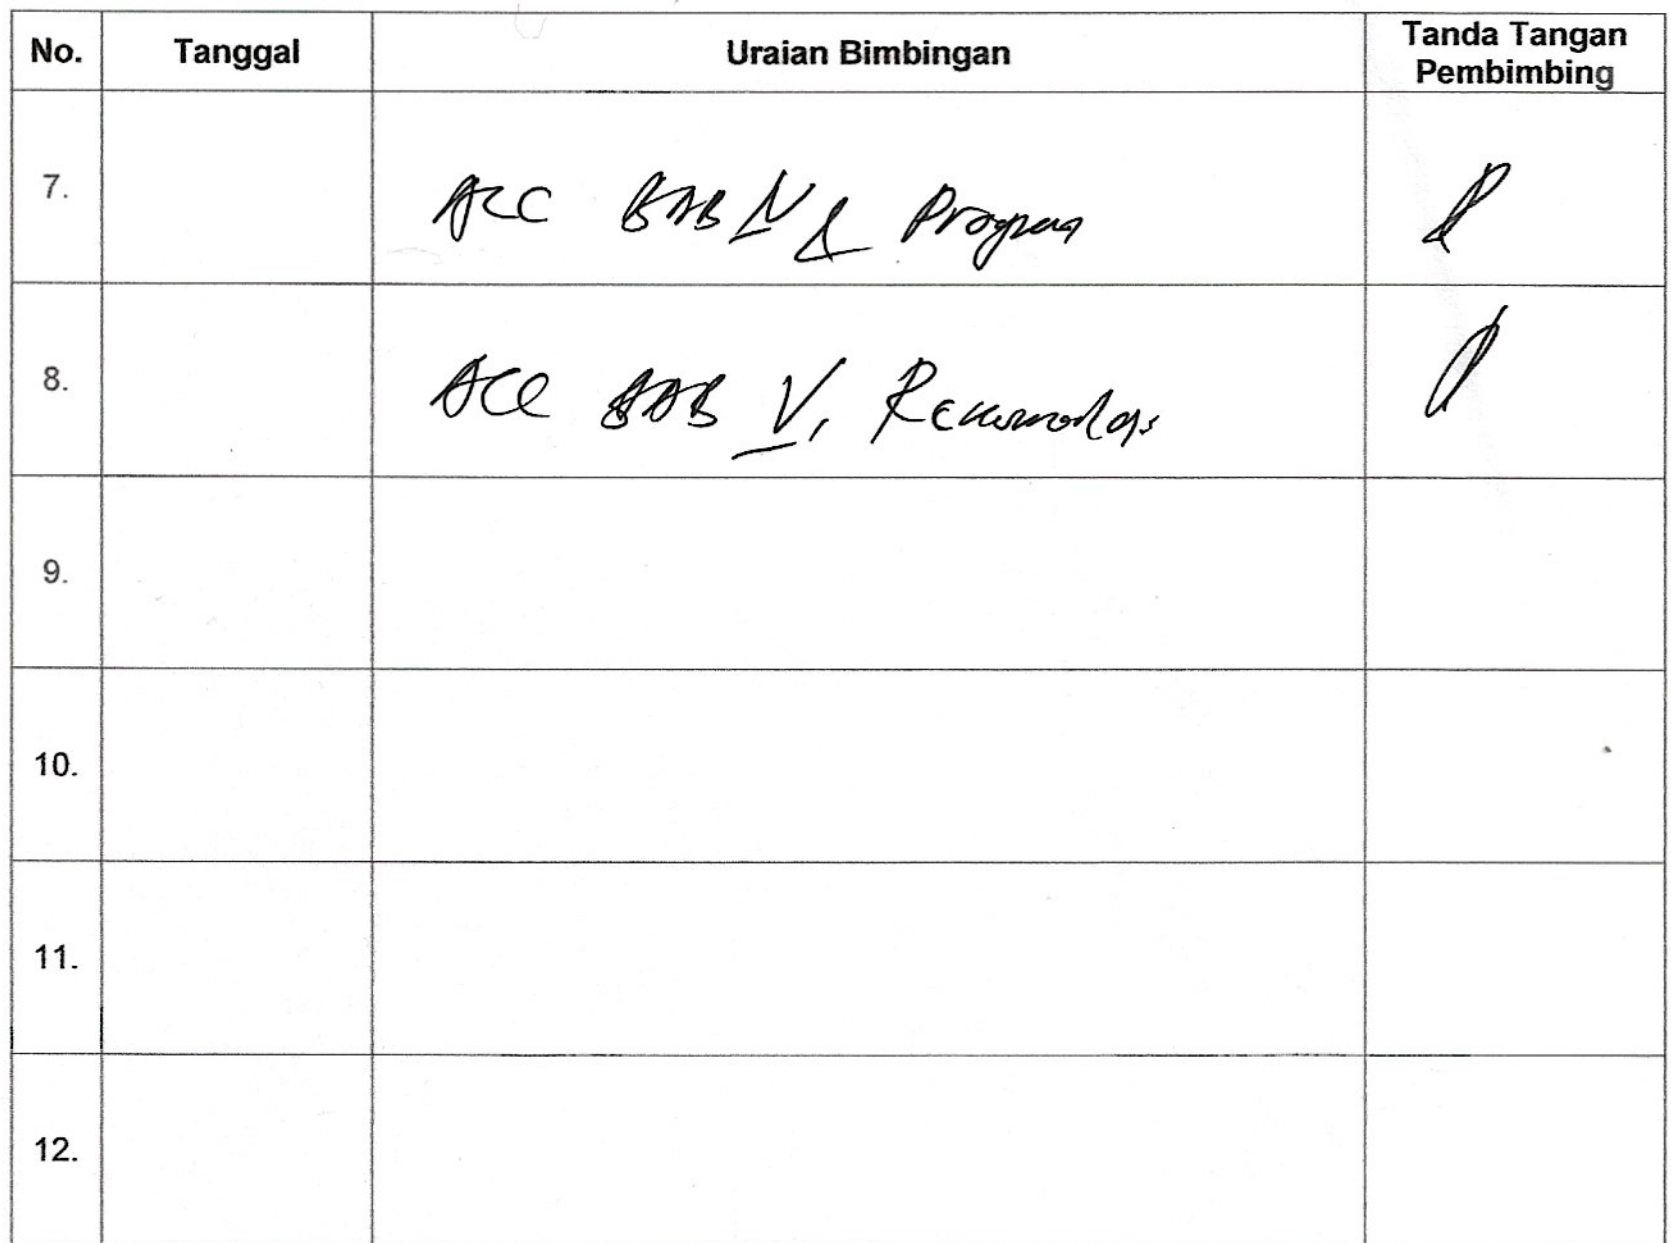 No. Tanggal Uraian Bimbingan Tanda Tangan Pembimbing
7. ACC BAB IV & Program
8. ACC BAB V,
9.
10.
11.
12.